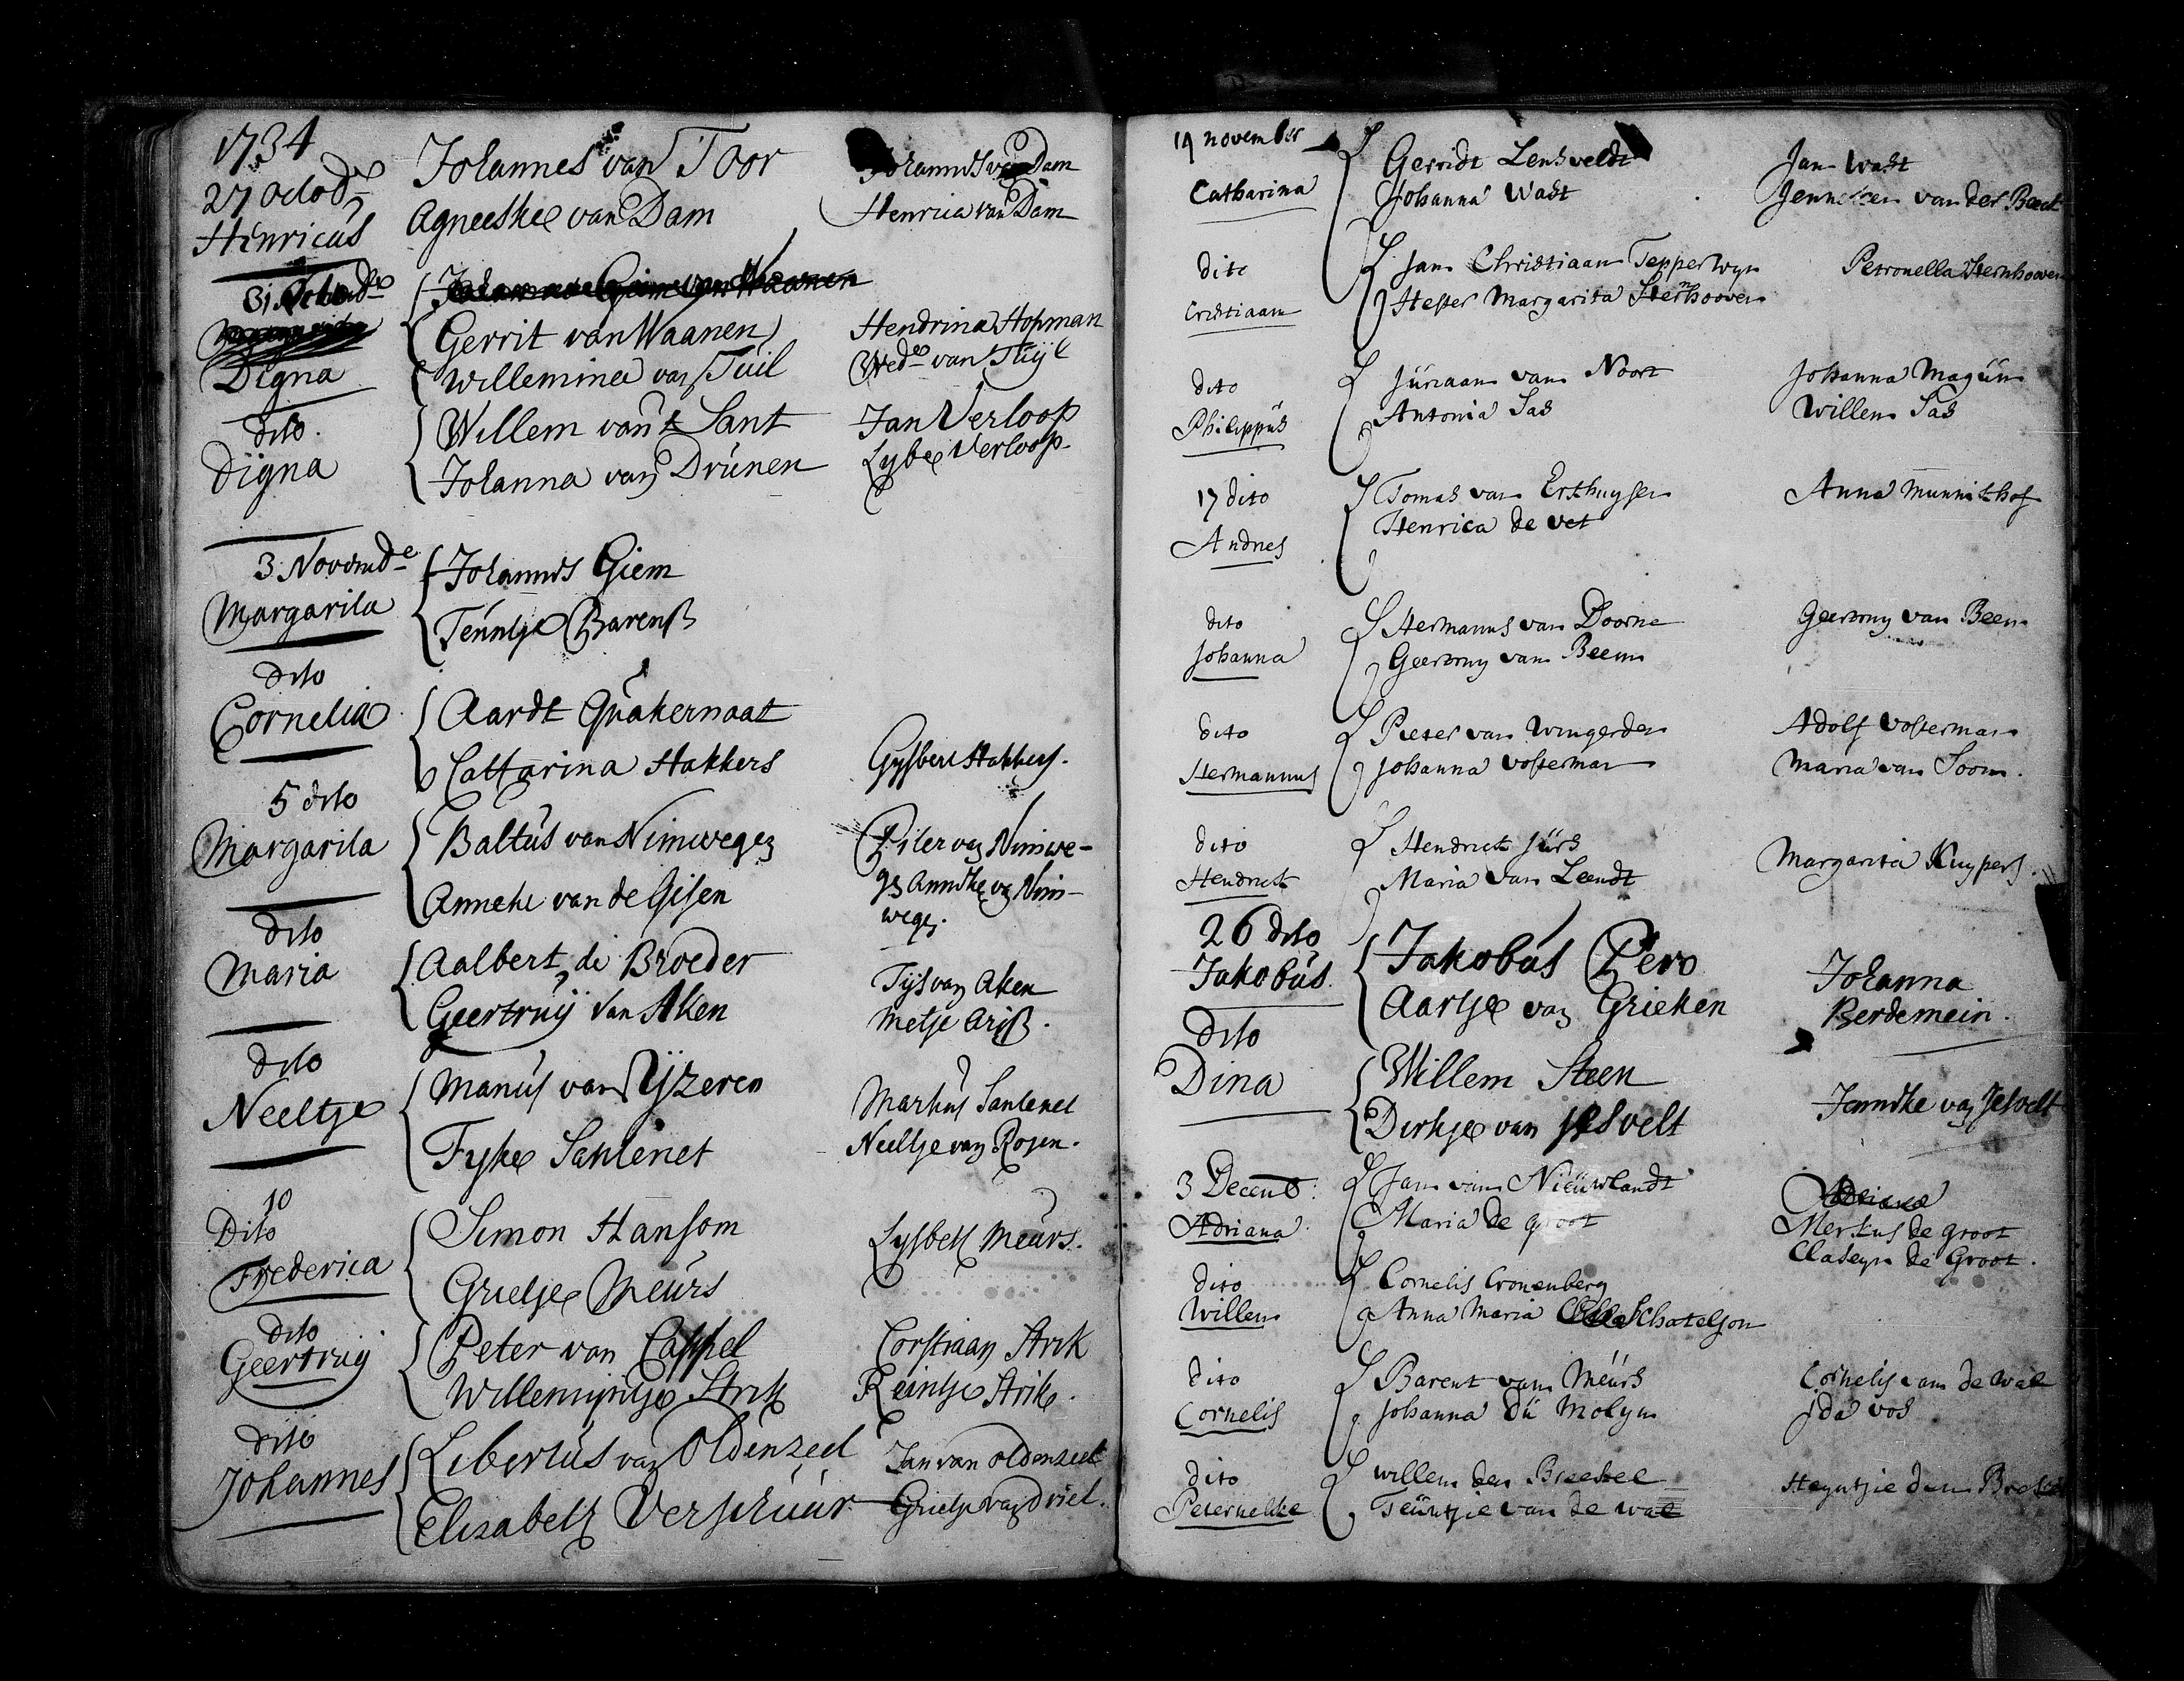 1734
27 Octob
Henricus
Johannes van Toor
Agneeske van Dam
Johannes van Dam
Henrica van Dam
31
Digna
Gerrit van Waanen
Willemina van Tuil
Hendrina Hopman
Wed. van Tuyl
dito
Digna
Willem van 't Sant
Johanna van Drunen
Jan Verloop
Lybe Verloop
3 Novemb
Margarita
Johannes Giem
Teuntje Barenss
dito
Cornelia
Aardt Quakernaat
Cattarina Hakkers
Gysbert Hakkers.
5 dito
Margarita
Baltus van Nimwegen
Anneke van de Gisen
Piter van Nimwe-
gen Anneke van Nim-
wegen.
dito
Maria
Aalbert de Broeder
Geertruij van Aken
Tys van Aken
Metje Ariss.
dito
Neeltje
Manus van Yzeren
Fyke Santenet
Markus Santenet
Neeltje van Rosen.
10
Dito
Frederica
Simon Hansom
Grietje Meurs
Lysbeth Meurs.
dito
Geertruij
Peter van Cappel
Willemijntje Strik
Corstiaan Strik
Reintje Strik.
dito
Johannes
Libertus van Oldenzeel
Elisabeth Verschuur
Jan van Oldenzeel
Grietje van Driel.
19 november
Catharina
Gerridt Lensveldt
Johanna Wast
Jan Wast
Jenneken van der Beek
dito
Cristiaan
Jan Christiaan Tepperwyn
Hester Margarita Sternhooven
Petronella Sternhooven
dito
Philippus
Juriaan van Noort
Antonia Sas
Johanna Magiin
Willem Sas
17 dito
Andries
Tomas van Ersthuysen
Henrica de vet
Anna Munnikhof
dito
Johanna
Hermanus van Doorne
Geertruy van Beem
Geertruy van Beem
dito
Hermannus
Pieter van Wingerden
Johanna Vosterman
Adolf Vosterman
Maria van Soom.
dito
Hendrick
Hendrick Jurs
Maria van Leendt
Margarita Kuypers.
26 dito
Jakobus.
Jakobus Pero
Aartje van Grieken
Johanna
Berdemein.
dito
Dina
Willem Steen
Dirkje van Jesvelt
Janneke van Jesvelt
3 Decemb:
Adriana
Jan van Nieuwlandt
Maria de groot
Merkus de groot
Claseyn de Groot.
dito
Willem
Cornelis Cronenberg
Anna Maria Schatelson
dito
Cornelis
Barent van Meurs
Johanna du Molyn
Cornelis van de wal
Ida vos
dito
Peternelke
Willem den Breebee
Teuntjie van de wal
Heyntjie den